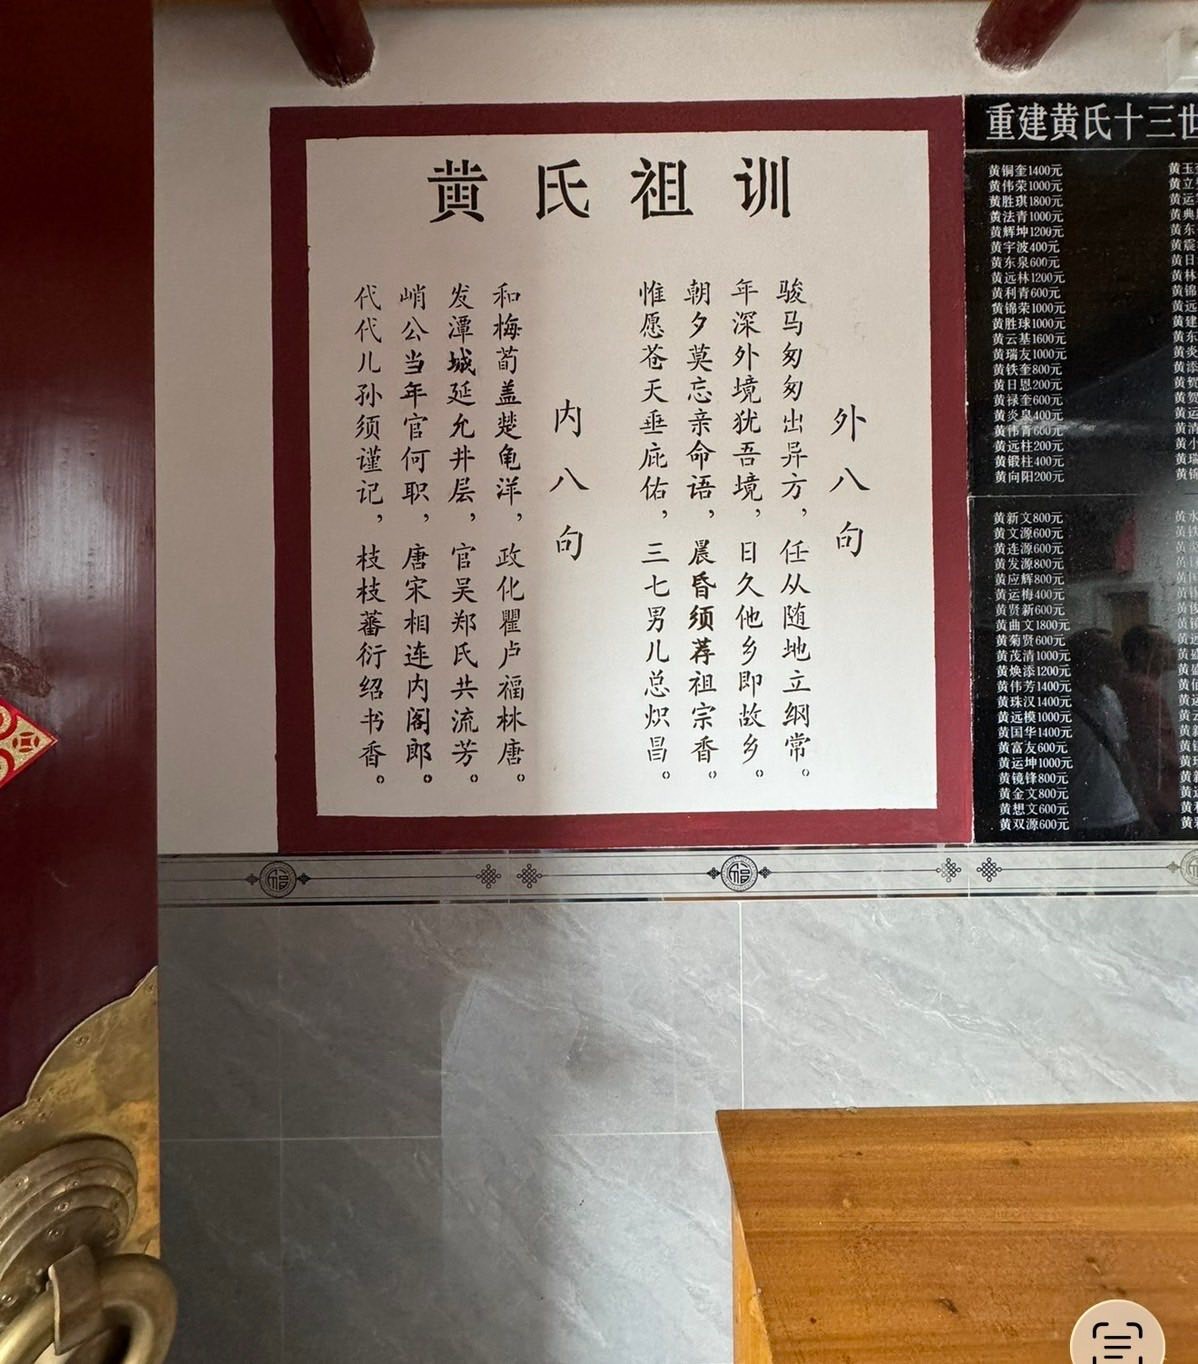 黄氏祖训
外八句
骏马匆匆出异方，任从随地立纲常。
年深外境犹吾境，日久他乡即故乡。
朝夕莫忘亲命语，晨昏须荐祖宗香。
惟愿苍天垂庇佑，三七男儿总炽昌。
内八句
和梅蔔盖楚龟洋，政化瞿卢福林唐。
发潭城延允井层，官吴郑氏共流芳。
峭公当年官何职，唐宋相连内阁郎。
代代儿孙须谨记，枝枝蕃衍绍书香。
重建黄氏十三世
黄铜奎1400元
黄伟荣1000元
黄胜琪1800元
黄法青1000元
黄辉坤1200元
黄宇波400元
黄东泉600元
黄远林1200元
黄利青600元
黄锦荣1000元
黄胜球1000元
黄云基1600元
黄瑞友1000元
黄铁奎800元
黄日恩200元
黄禄奎600元
黄炎泉400元
黄伟青600元
黄远柱200元
黄锻柱400元
黄向阳200元
黄新文800元
黄文源600元
黄连源600元
黄发源800元
黄应辉800元
黄运梅400元
黄贤新600元
黄曲文1800元
黄菊贤600元
黄茂清1000元
黄焕添1200元
黄伟芳1400元
黄珠汉1400元
黄远模1000元
黄国华1400元
黄富友600元
黄运坤1000元
黄镜锋800元
黄金文800元
黄想文600元
黄双源600元